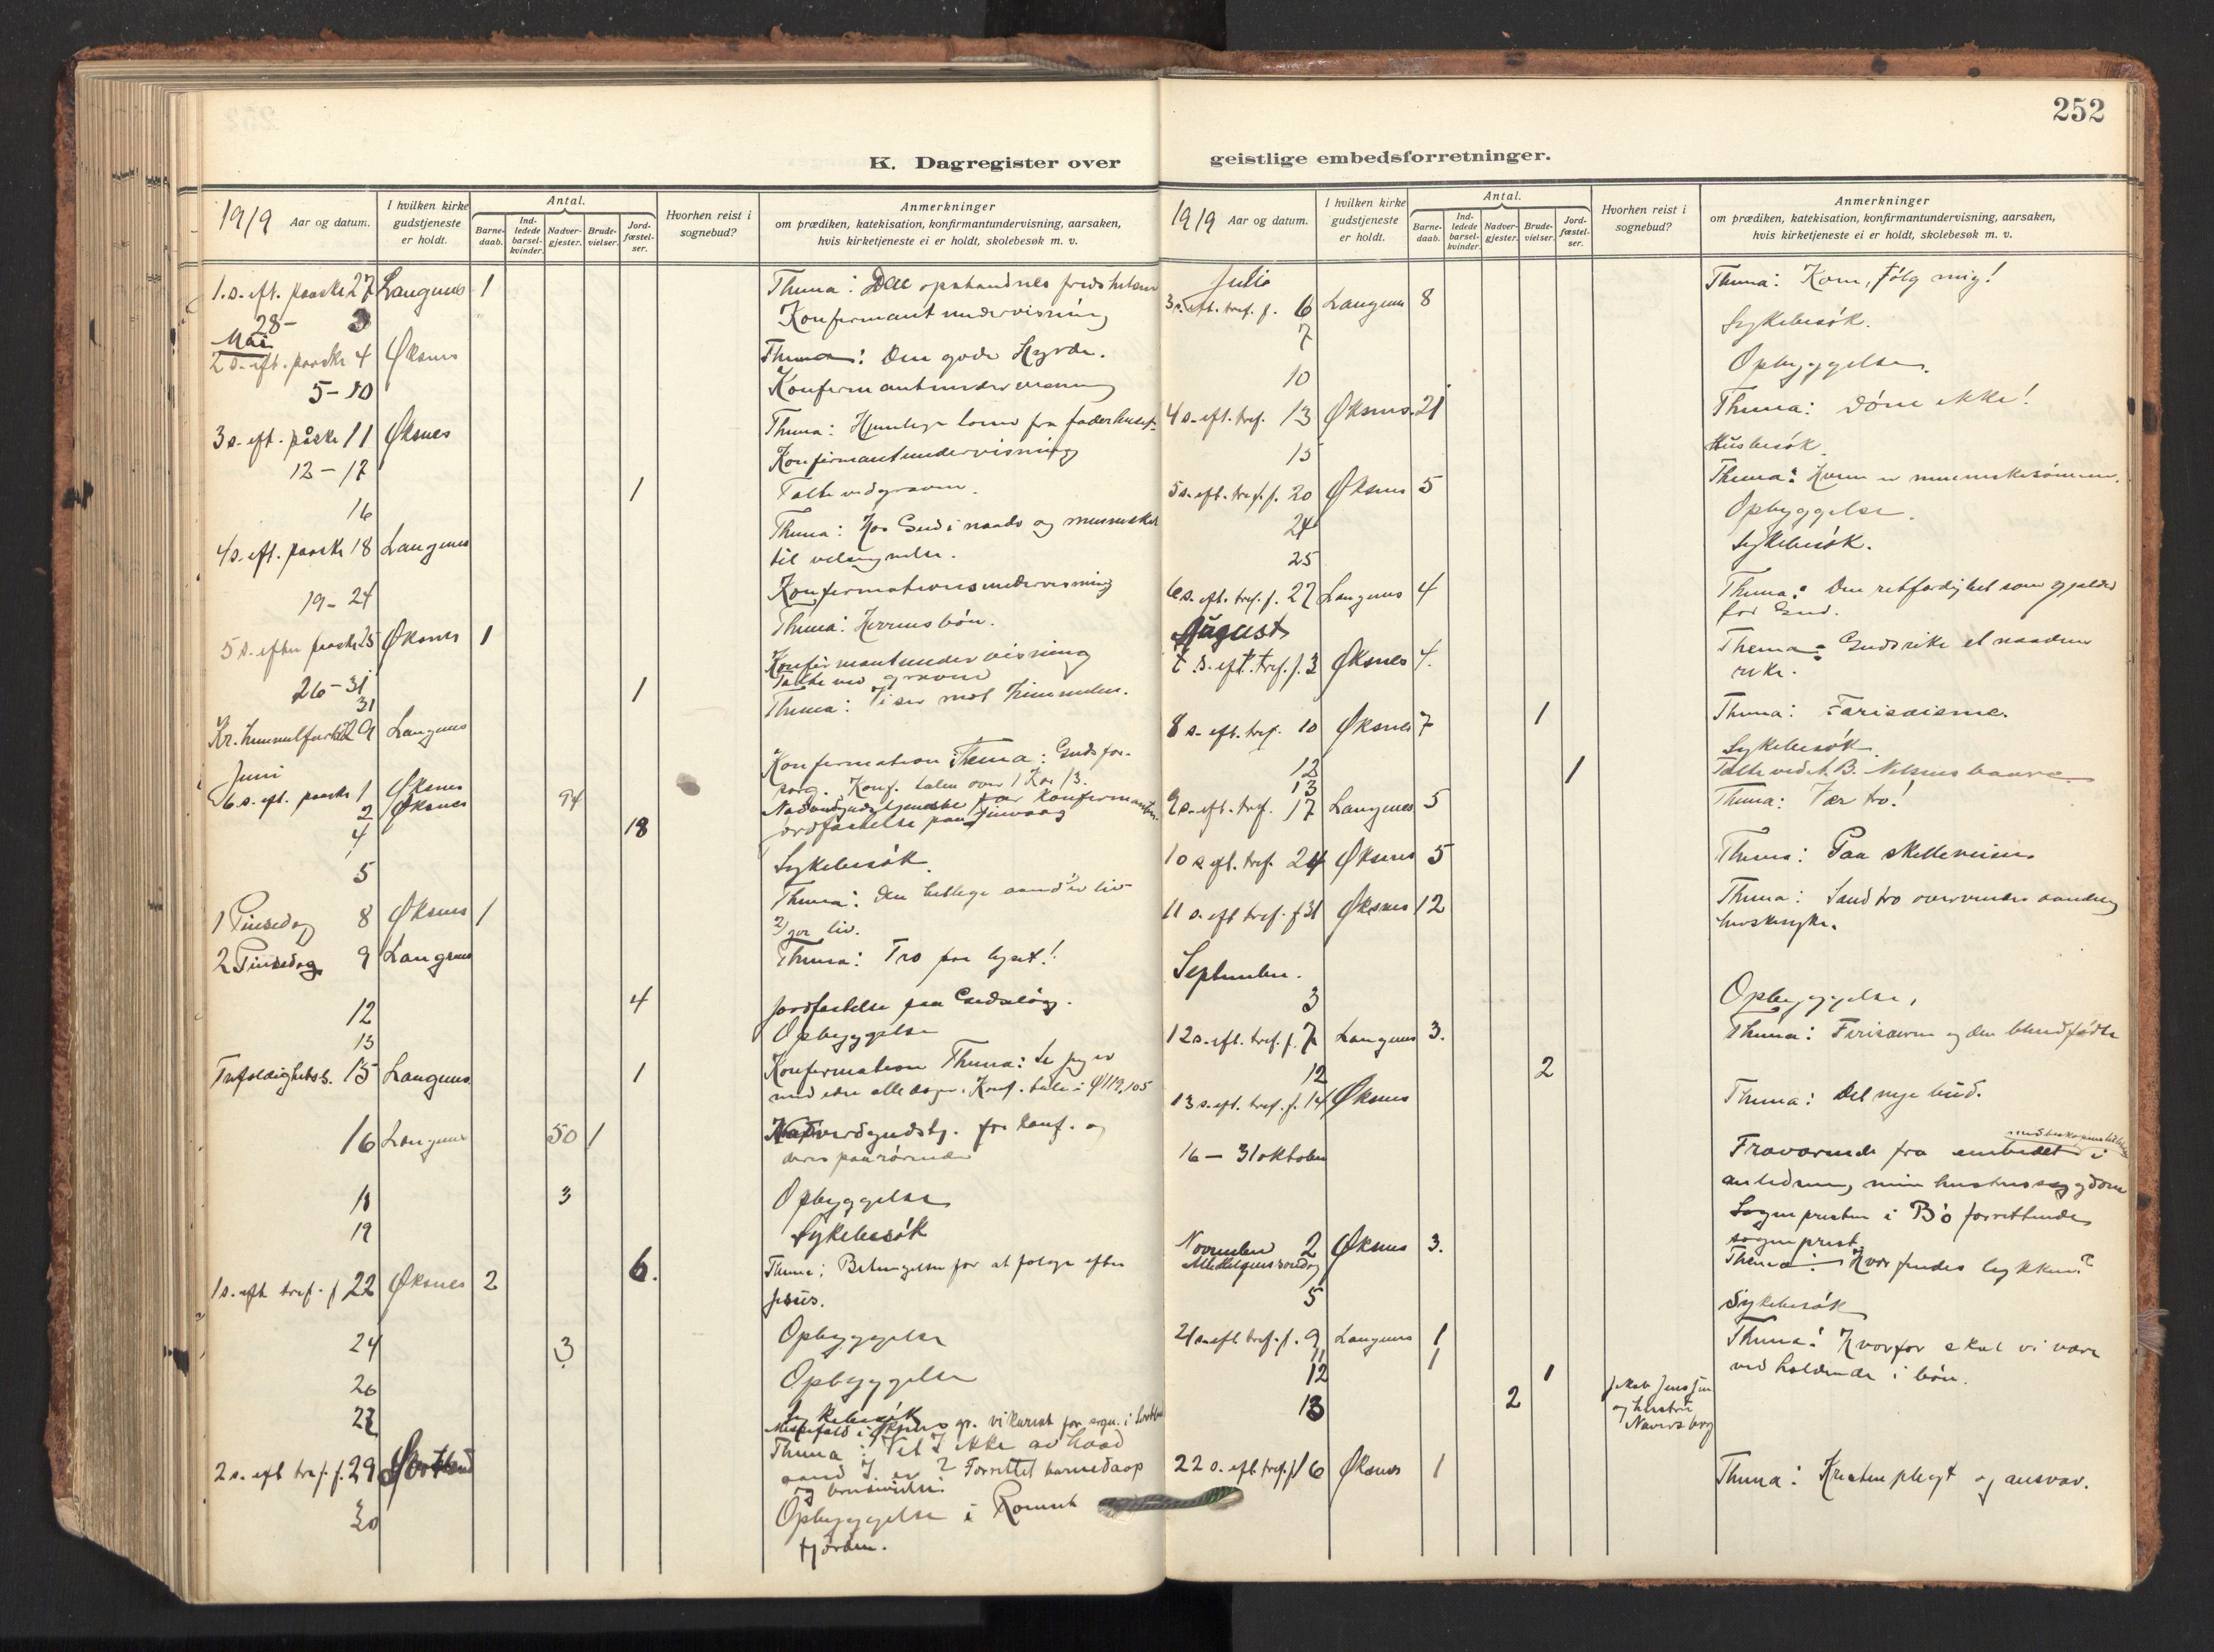 252
K. Dagregister over
geistlige embedsforretninger.
1919 Aar og datum.
I hvilken kirke
gudstjeneste
er holdt.
Antal.
Barne-
daab.
Ind-
ledede
barsel-
kvinder.
Nadver-
gjester.
Brude-
vielser.
Jord-
fæstel-
ser.
Hvorhen reist i
sognebud?
Anmerkninger
om prædiken, katekisation, konfirmantundervisning, aarsaken,
hvis kirketjeneste ei er holdt, skolebesøk m. v.
1. s. eft. paaske 27 Langnes 1 Thema: Den opstandnes
28 - 3 Konfirmantundervisning
Mai
2 s. eft. paaske 4 Øksnes Thema: Den gode Hyrde.
5-10 Konfirmantundervisning
3 s. eft. påske 11 Øksnes Thema: fra faderhuset
12-17 Konfirmantundervisning
16 1 Talte ved graven.
4 s. eft. paaske 18 Langnes Thema: Hos Gud i naade og mennesker
til velsignelse.
19-24 Konfirmationsundervisning
5 s. efter paaske 25 Øksnes 1 Thema: Herrens bön.
26-31 Konfirmantundervisning
31 1 Talte ved graven
Kr. himmelfart 29 Langnes Thema: Vi ser mot himmelen.
Juni
6 s. eft. paaske 1 Øksnes Konfirmation Thema: Guds for-
sorg. Konf. talen over 1 Kor 13.
2 Øksnes 94 for konfirmanter
4 18 Jordfæstelse paa
5 Sykebesök
1 Pinsedag 8 Øksnes 1 Thema: Den hellige aand er liv
2) gir liv.
2 Pinsedag 9 Langnes Thema: Tro paa lyset!
12 4 Jordfæstelse paa
13 Opbyggelse
Trefoldighets s. 15 Langnes 1 Konfirmation Thema: Se jeg er
med eder alle dager. Konf. tale i Ψ 119,105
16 Langnes 50 1 Nadverdgudstj. for konf. og
deres paarörende
18 3 Opbyggelse
19 Sykebesök
1 s. eft tref. f 22 Øksnes 2 6. Thema: Betingelsen for at følge efter
Jesus.
24 3 Opbyggelse
26 Opbyggelse
27 Sykebesök
2 s. eft tref. f. 29 Sortland Thema: Vet I ikke av hvad
aand I er? Forrettet barnedaap
og brudevielse
30 Opbyggelse i
fjorden.
1919 Aar og datum.
I hvilken kirke
gudstjeneste
er holdt.
Antal.
Barne-
daab.
Ind-
ledede
barsel-
kvinder.
Nadver-
gjester.
Brude-
vielser.
Jord-
fæstel-
ser.
Hvorhen reist i
sognebud?
Anmerkninger
om prædiken, katekisation, konfirmantundervisning, aarsaken,
hvis kirketjeneste ei er holdt, skolebesøk m. v.
Juli
3 s. eft. tref. f. 6 Langnes 8 Thema: Kom, fölg mig!
7 Sykebesök.
10 Opbyggelse.
4 s. eft. tref. 13 Øksnes 21 Thema: Döm ikke!
15 Husbesök.
5 s. eft. tref. f. 20 Øksnes 5 Thema: Hvem er menneskesönnen.
24 Opbyggelse.
25 Sykebesök.
6 s. eft. tref. f. 27 Langnes 4 Thema: Den retfærdighet som gjelder
for Gud.
August
7 s. eft. tref. f. 3 Øksnes 4. Thema: Gudsrike et naadens
rike.
8 s. eft. tref. 10 Øksnes 7 1 Thema: Farisæisme.
12 Sykebesök.
13 1 Talte ved A. B. Nelsens baare
9 s. eft. tref. 17 Langnes 5 Thema: Vær tro!
10 s eft. tref. 24 Øksnes 5 Thema: Paa skilleveien
11 s. eft tref. f 31 Øksnes 12 Thema: Sand tro overvinder aandelig
September.
3 Opbyggelse,
12 s. eft. tref. f. 7 Langnes 3. Thema: og den blindfödte
12 2
13 s. eft. tref. f. 14 Øksnes Thema: Det nye bud.
16 - 31 oktober Fraværende fra embedet i
anledning min hustrus sygdom
Sognepresten i Bö forrettende
sogneprest.
November 2 Øksnes 3. Thema: Hvor findes lykken?
Allehelgenssöndag
5 Sykebesök
21 s. eft. tref. f. 9 Langnes 1 Thema: Hvorfor skal vi være
11 1 vedholdende i bön.
12 1
13 2 Jakob Jenssen
og hustru
22 s. eft. tref. f 16 Øksnes 1 Thema: Kristen pligt og ansvar.